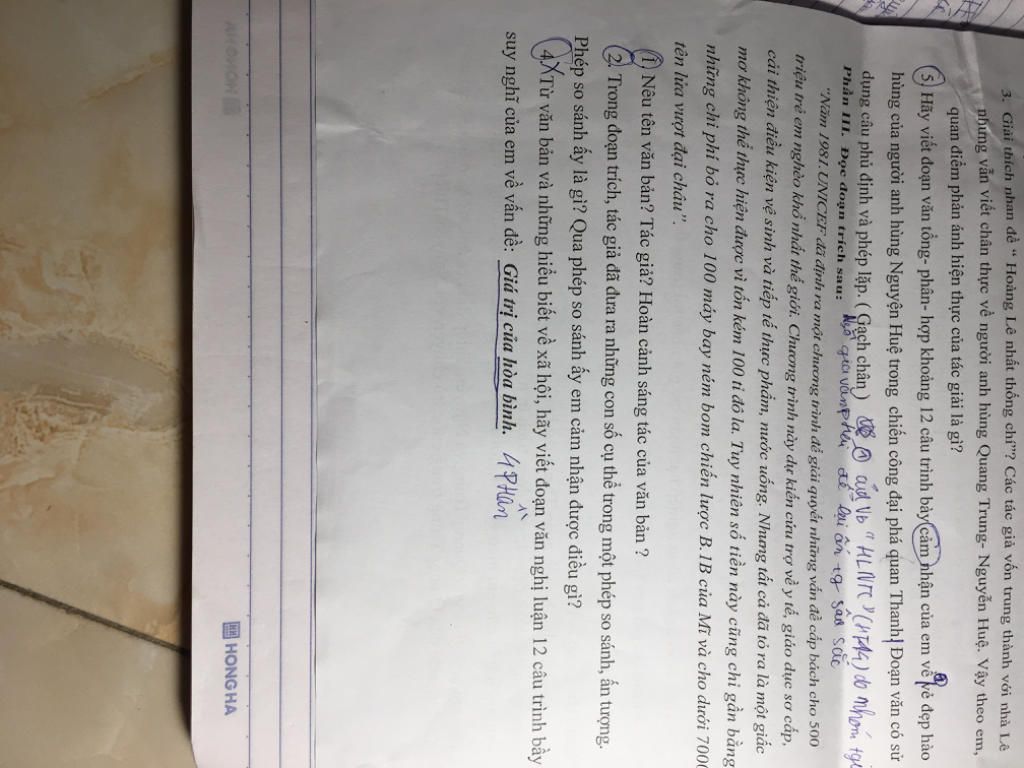 3. Giải thích nhan đề “ Hoàng Lê nhất thống chí”? Các tác giả vốn trung thành với nhà Lê
nhưng vẫn viết chân thực về người anh hùng Quang Trung- Nguyễn Huệ. Vậy theo em,
quan điểm phản ánh hiện thực của tác giải là gì?
5) Hãy viết đoạn văn tổng- phân- hợp khoảng 12 câu trình bày cảm nhận của em về vẻ đẹp hào
hùng của người anh hùng Nguyện Huệ trong chiến công đại phá quan Thanh Đoạn văn có sử
dụng câu phủ định và phép lặp. (Gạch chân) vb "HLNTC" do nhóm tg
Phần III. Đọc đoạn trích sau: Ngô gia văn phái để lại ấn tg sâu sắc
"Năm 1981,UNICEF đã định ra một chương trình để giải quyết những vấn đề cấp bách cho 500
triệu trẻ em nghèo khổ nhất thế giới. Chương trình này dự kiến cứu trợ về y tế, giáo dục sơ cấp,
cải thiện điều kiện vệ sinh và tiếp tế thực phẩm, nước uống. Nhưng tất cả đã tỏ ra là một giấc
mơ không thể thực hiện được vì tốn kém 100 tỉ đô la. Tuy nhiên số tiền này cũng chỉ gần bằng
những chi phí bỏ ra cho 100 máy bay ném bom chiến lược B.1B của Mĩ và cho dưới 7000
tên lửa vượt đại châu".
1) Nêu tên văn bản? Tác giả? Hoàn cảnh sáng tác của văn bản ?
2. Trong đoạn trích, tác giả đã đưa ra những con số cụ thể trong một phép so sánh, ấn tượng.
Phép so sánh ấy là gì? Qua phép so sánh ấy em cảm nhận được điều gì?
4. Từ văn bản và những hiểu biết về xã hội, hãy viết đoạn văn nghị luận 12 câu trình bày
suy nghĩ của em về vấn đề: Giá trị của hòa bình. 4 phần
HH HONG HA